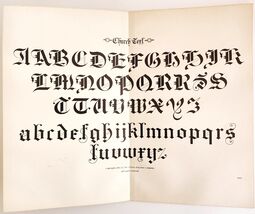 Church Text
ABCDEFGHIK
LMNOPQRRSS
TTUVWXYZ
abcdefghijklmnopqrs
tuvwxyz